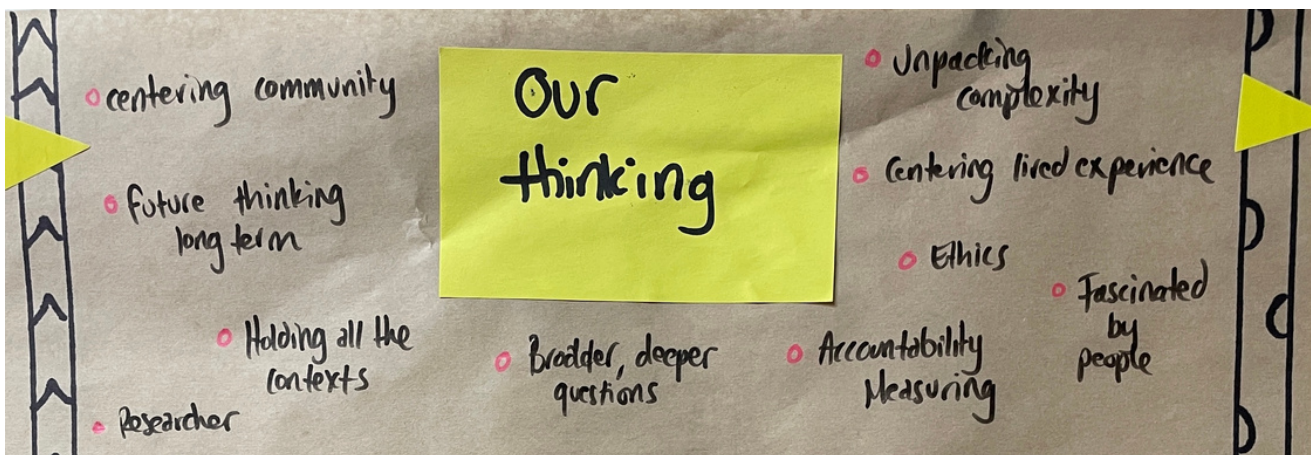 Our
thinking
centering community
future thinking
long term
Holding all the
contexts
Researcher
Broader, deeper
questions
Unpacking
complexity
Centering lived experience
Ethics
Fascinated
by
people
Accountability
Measuring